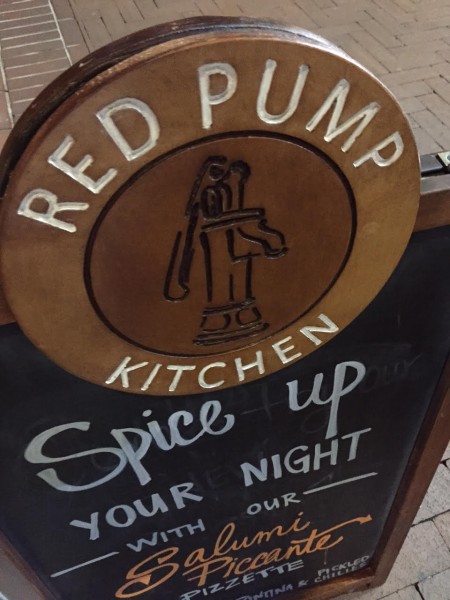 RED PUMP
KITCHEN
Spice up
YOUR NIGHT
WITH OUR
Salumi
Piccante
PIZZETTE
FONTINA & PICKLED
CHILIES